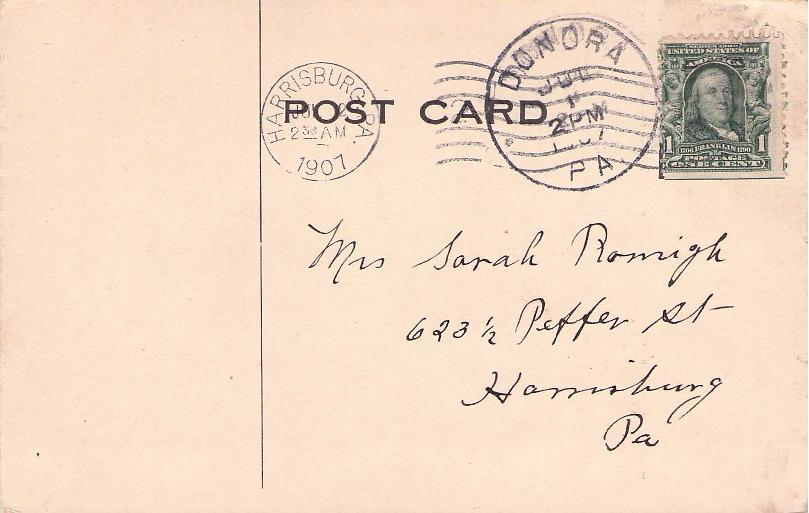 POST CARD
HARRISBURG, PA.
2 30 AM
1907
DONORA
JUL
2 PM
PA
SERIES 1902
UNITED STATES OF
AMERICA
1706 FRANKLIN 1790
POSTAGE
1 ONE CENT 1
Mrs Sarah Romigh
623 ½ Peffer St
Harrisburg
Pa